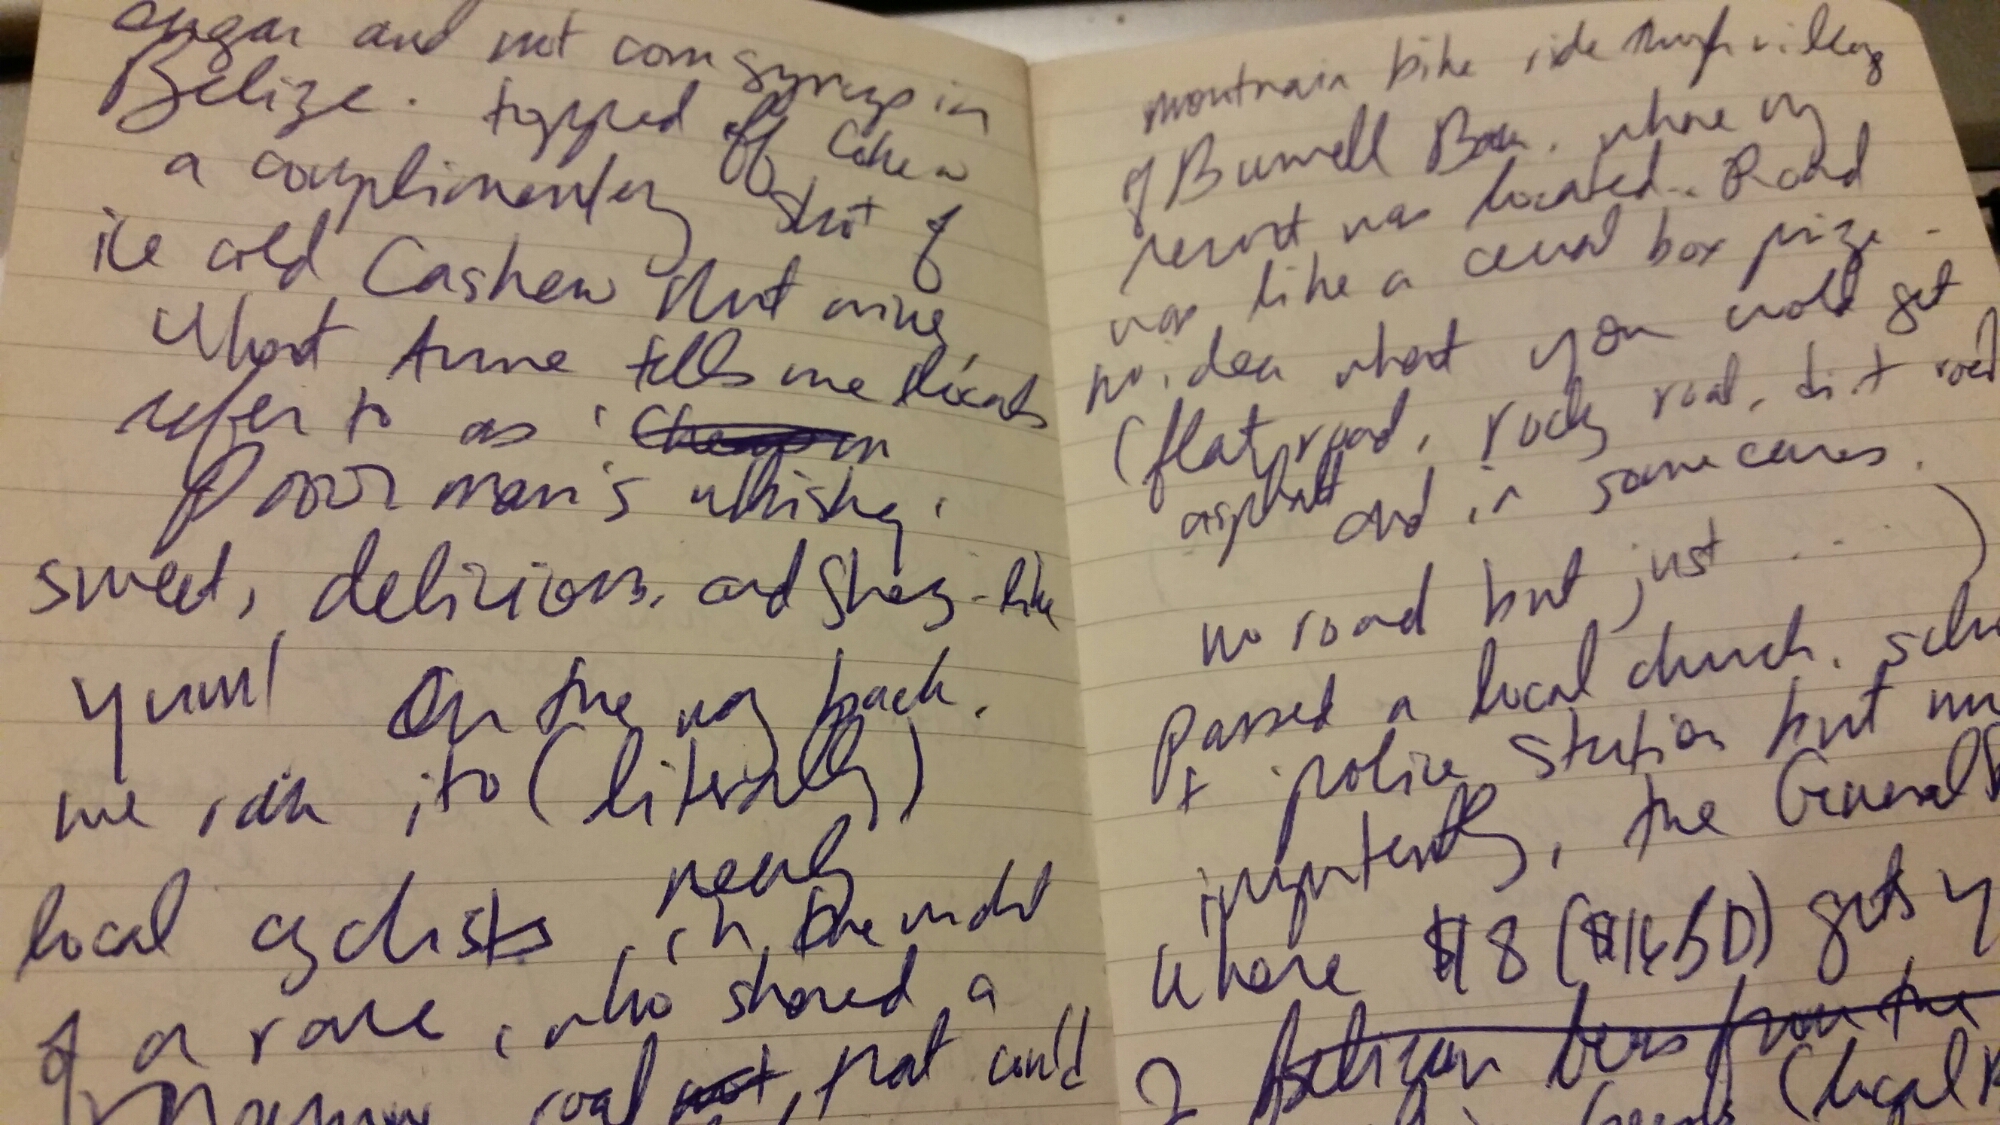 sugar and not corn syrup in
Belize. topped off
a complimentary shot of
ice cold Cashew Nut wine,
what Anne tells me locals
refer to as '
Poor man's whisky.
sweet, delicious, and Sherry-like
yum! On the way back.
we ran ito (literally)
nearly
local cyclists in the midst
of a race, who shared a
road that could
mountain bike ride through village
of Burrell Boom. where my
resort was located. Road
was like a cereal box prize -
no idea what you would get
(flat road, rocky road, dirt road
asphalt and in some cases.
no road but just ... )
Passed a local church,
+ police station but
importantly, the General
where $8 ($16 BD) gets
2 Belikan beers from the
(local